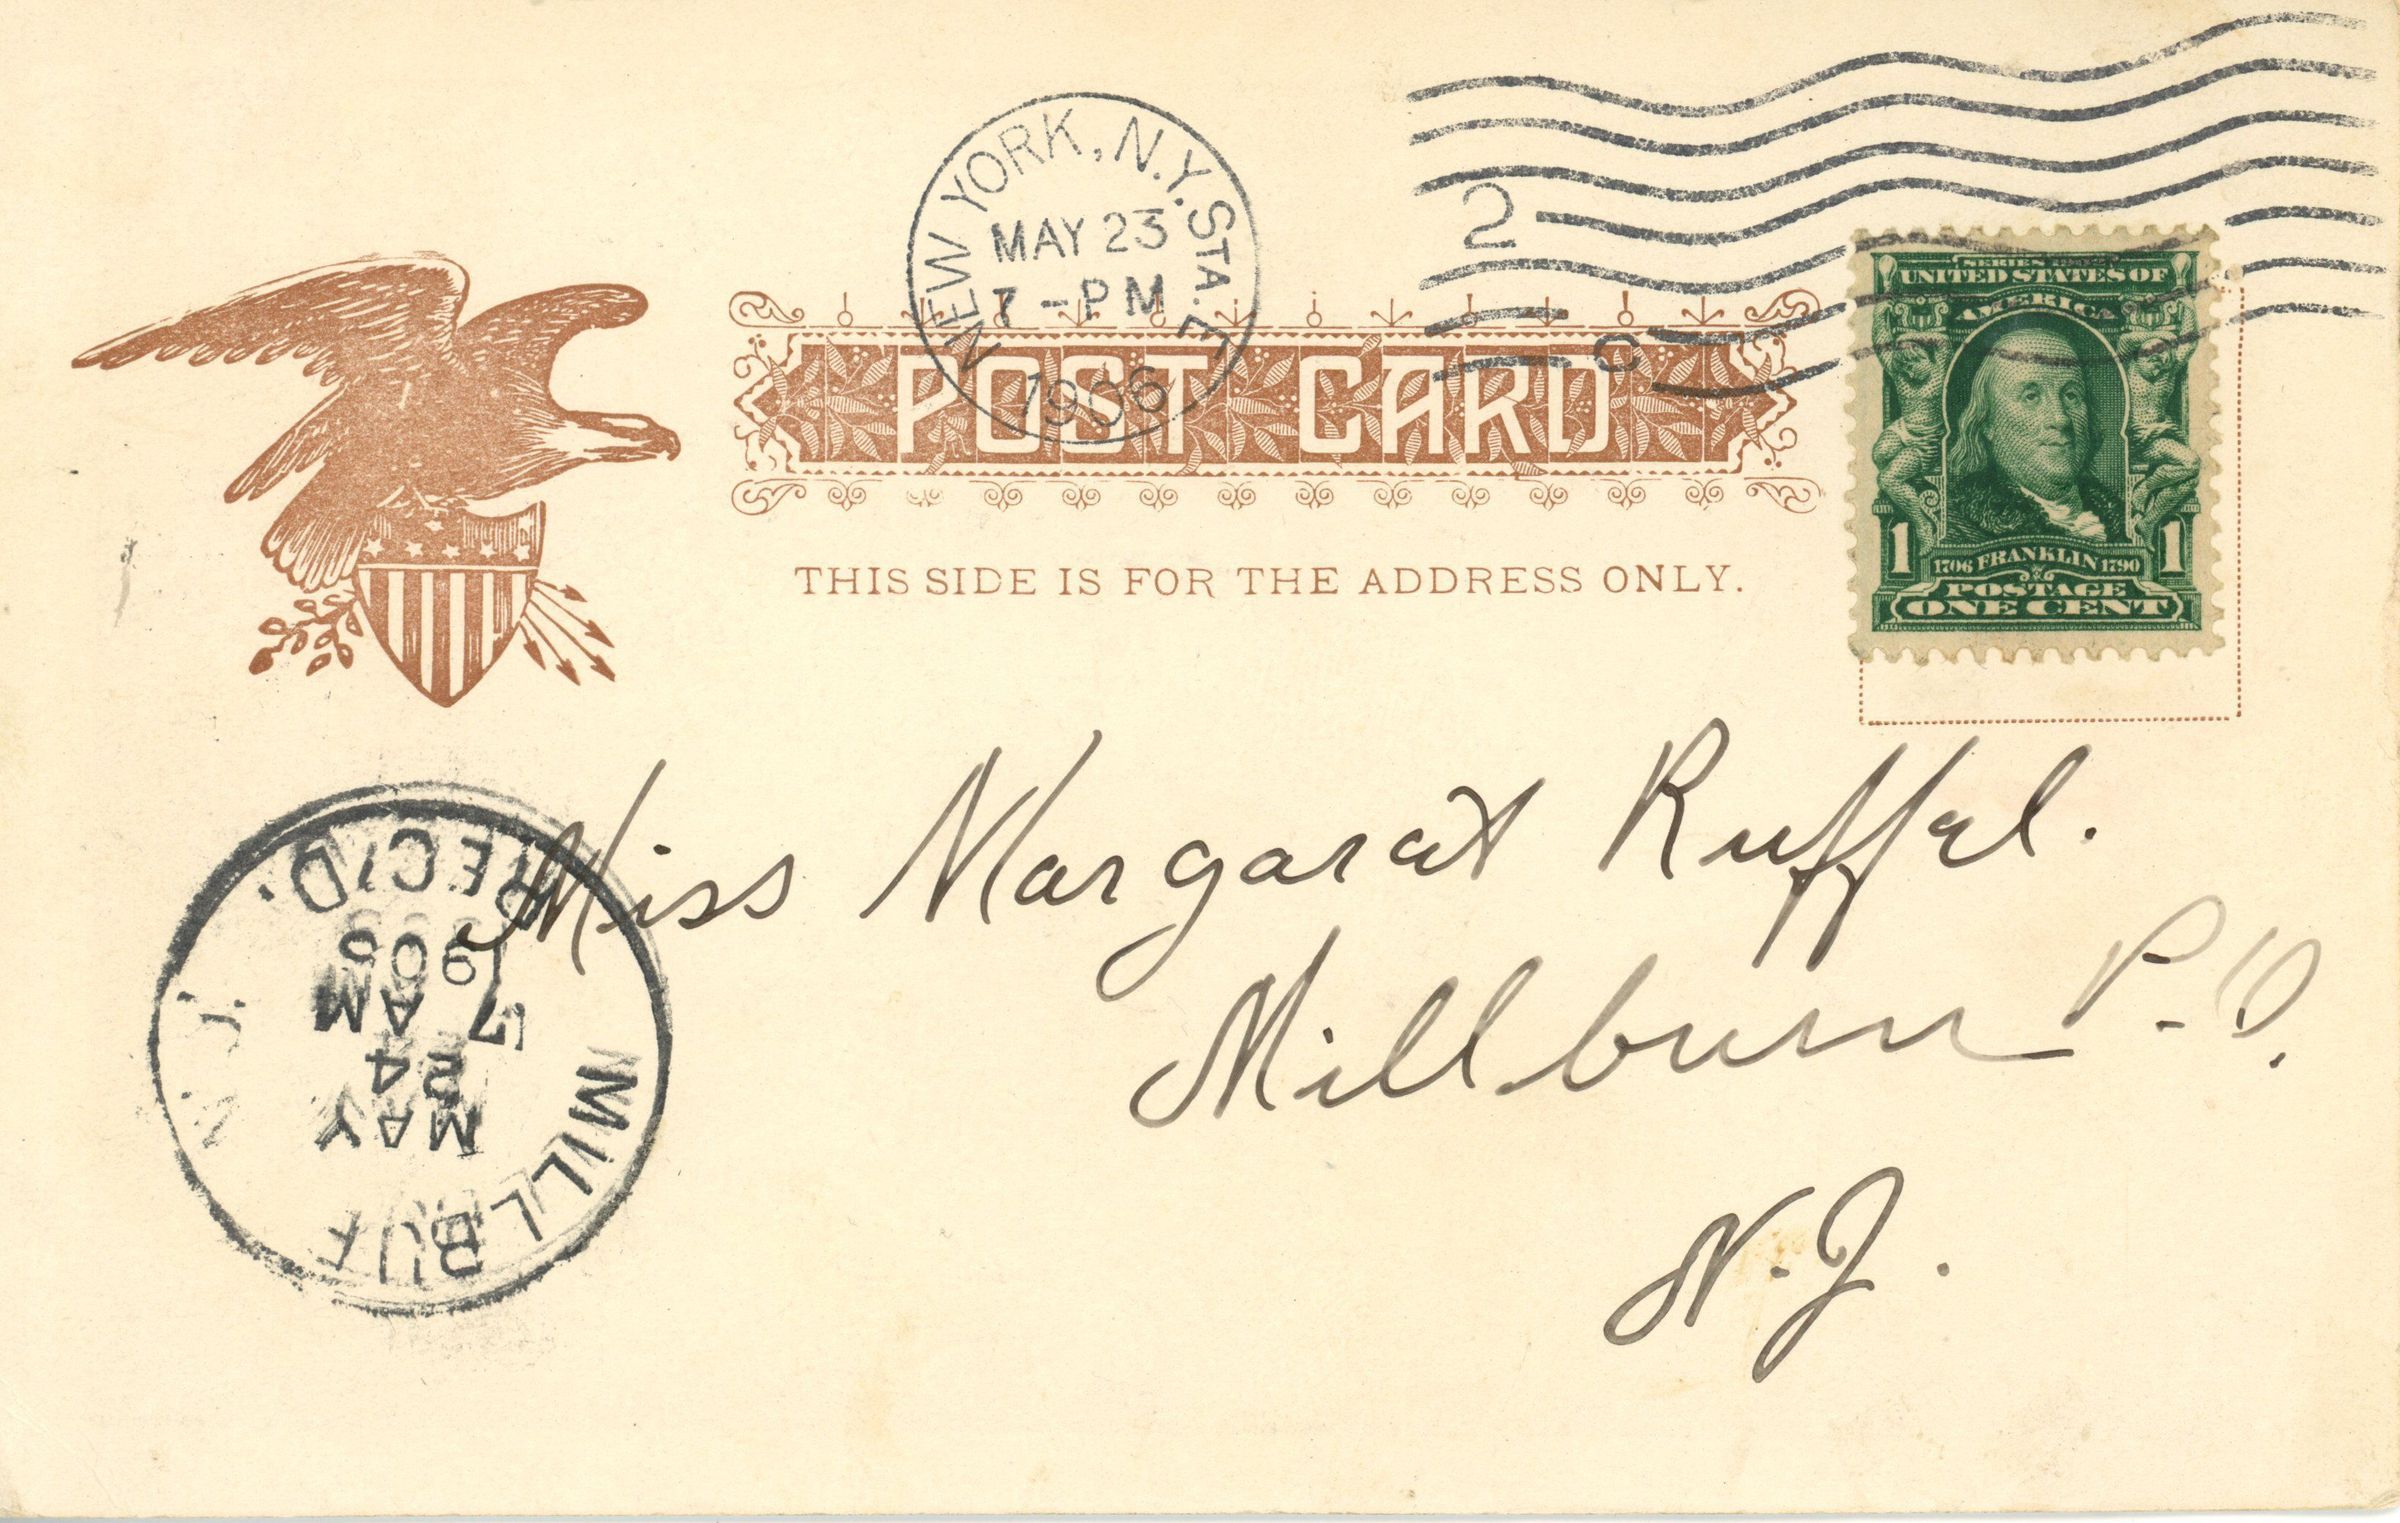 NEW YORK, N.Y. STA. E
MAY 23
7 - PM
1906
2
C
POST CARD
THIS SIDE IS FOR THE ADDRESS ONLY.
SERIES 1902
UNITED STATES OF
AMERICA
1 1
1706 FRANKLIN 1790
POSTAGE
ONE CENT
Miss Margaret Ruffel.
Millburn P.O.
N.J.
MILLBU N.J.
MAY
24
7 AM
1906
REC'D.